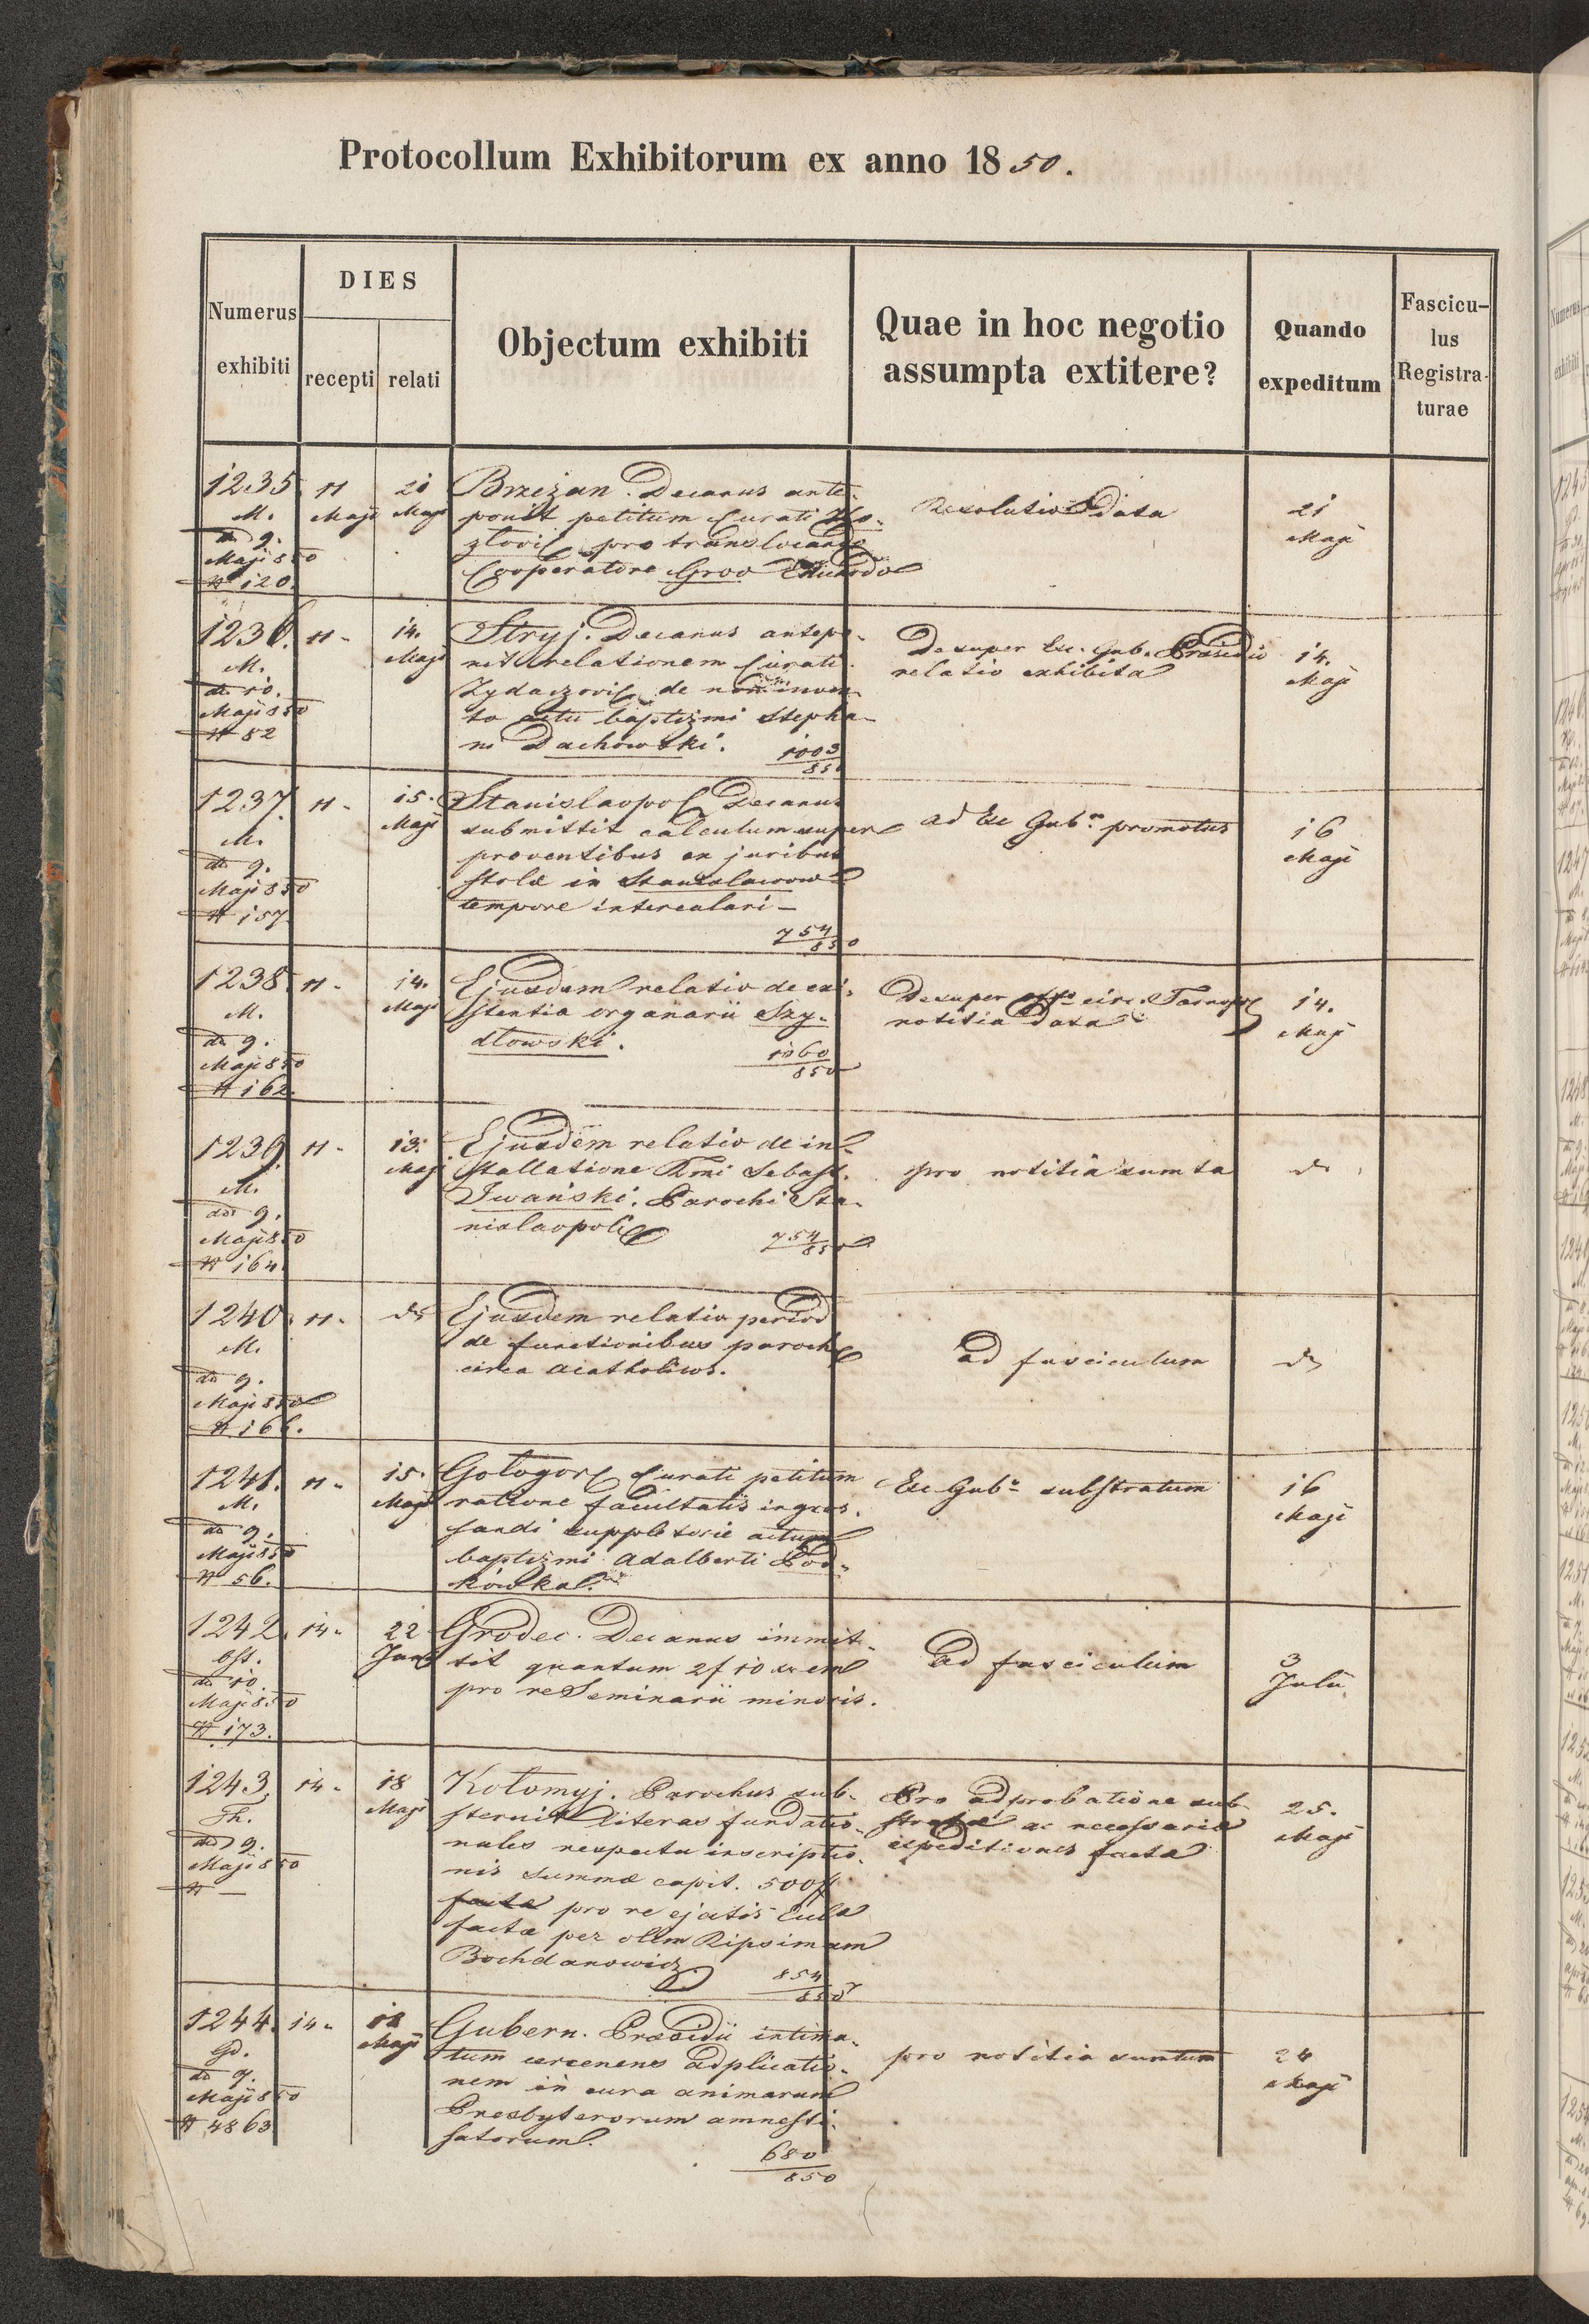 Protocollum Exhibitorum ex anno 1850.
Numerus exhibiti
DIES
recepti
relati
Objectum exhibiti
Quae in hoc negotio
assumpta extitere?
Quando
expeditum
Fascicu-
lus
Registra-
turae
1235
M.
do 9.
Maji 850
N 120.
11
Maji
21
Maji
Brzeżan. Decanus ante-
ponit petitum Curati
pro translocando
Cooperatore
Resolutio data
21
Maji
1236.
M.
do 10.
Maji 850
N 82
11 -
14.
Maji
Stryj. Decanus antepo-
nit relationem Curati
de non inven-
to actu baptizmi Stepha-
ni Dachowski.
1003
850
Desuper Exc. Gub. Praesidio
relatio exhibita
14.
Maji
1237.
M.
do 9.
Maji 850
N 157
11 -
15.
Maji
Stanislaopol Decanus
submittit calculum super
proventibus ex juribus
stolæ in Stanislawow
tempore intercalari -
754
850
ad Exc Gubm promotus
16
Maji
1238.
M.
do 9.
Maji 850
N 162.
11 -
14.
Maji
Ejusdem relatio de exi-
stentia organarii Szy-
dłowski.
1060
850
Desuper circ. Tarnopol
notitia data
14.
Maji
1239.
M.
do 9.
Maji 850
N 164.
11 -
13.
Maji
Ejusdem relatio de in-
stallatione Rmi Sebast.
Iwański. Parochi Sta-
nislaopol
754
850
pro notitia sumta
do
1240.
M.
do 9.
Maji 850
N 166.
11 -
do
Ejusdem relatio period
de functionibus paroch
circa acatholicos.
ad fasciculum
do
1241.
M.
do 9.
Maji 850
N 56.
11 -
15.
Maji
Gołogor Curati petitum
ratione facultatis ingros-
sandi suppletorie actum
baptizmi Adalberti
Exc Gubo substratum
16
Maji
1242.
do 10.
Maji 850
N 173.
14 -
22
Juni
Grodec. Decanus immit-
tit quantum 2f 10 xr
pro re Seminarii minoris.
ad fasciculum
3
Julii
1243.
Th.
do 9.
Maji 850
N —
14 -
18
Maji
Kołomyj. Parochus sub-
sternit literas fundatio-
nales respectu inscriptio-
nis summæ capit. 500f
factæ pro re ejatis
factæ per olim Ripsimam
Bochdanowicz
854
850
Pro adprobatione sub-
stratæ ac necessariæ
expeditiones factæ
25.
Maji
1244.
Gd.
do 9.
Maji 850
N 4863
14 -
18
Maji
Gubern. Præsidii intima-
tum adplicatio-
nem in cura animarum
Presbyterorum amnesti-
satorum.
680
850
pro notitia sumtum
24
Maji